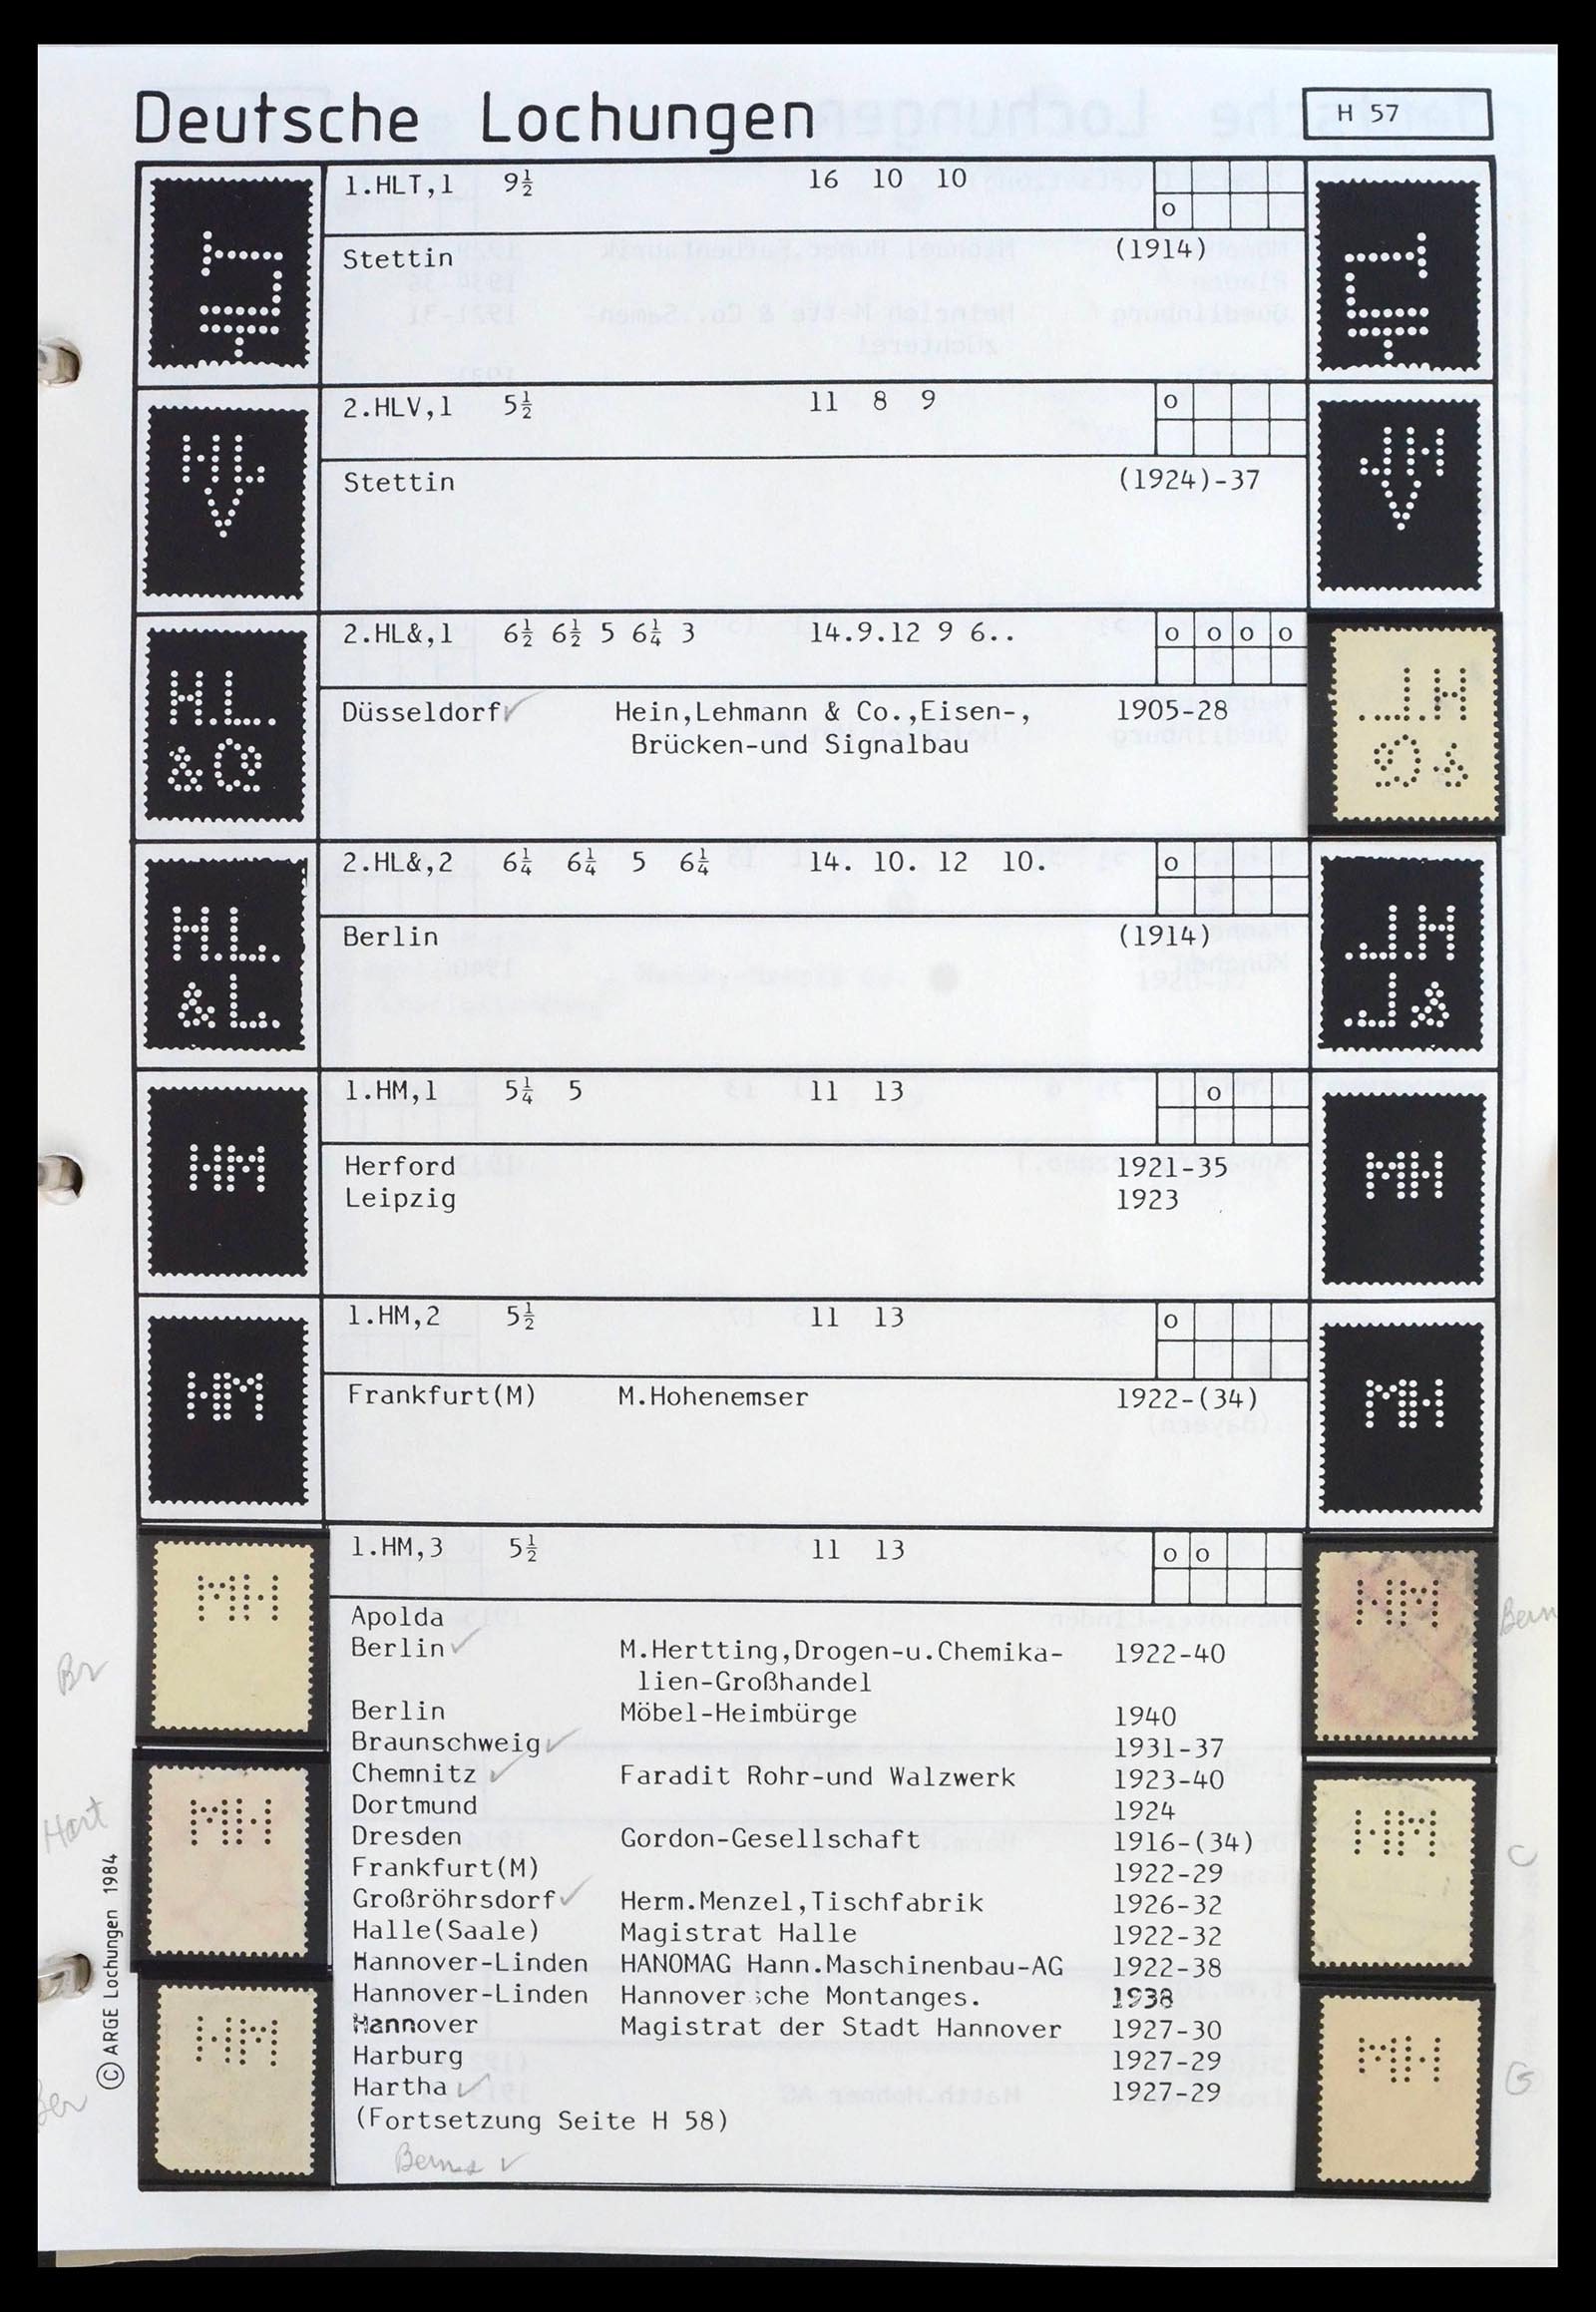 Deutsche Lochungen
H 57
1.HLT,1 9½ 16 10 10
o
Stettin (1914)
2.HLV,1 5½ 11 8 9 o
Stettin (1924)-37
2.HL&,1 6½ 6½ 5 6¼ 3 14.9.12 9 6.. o o o o
Düsseldorf Hein,Lehmann & Co.,Eisen-, 1905-28
Brücken-und Signalbau
2.HL&,2 6¼ 6¼ 5 6¼ 14. 10. 12 10. o
Berlin (1914)
1.HM,1 5¼ 5 11 13 o
Herford 1921-35
Leipzig 1923
1.HM,2 5½ 11 13 o
Frankfurt(M) M.Hohenemser 1922-(34)
1.HM,3 5½ 11 13 o o
Apolda
Berlin M.Hertting,Drogen-u.Chemika- 1922-40
lien-Großhandel
Berlin Möbel-Heimbürge 1940
Braunschweig 1931-37
Chemnitz Faradit Rohr-und Walzwerk 1923-40
Dortmund 1924
Dresden Gordon-Gesellschaft 1916-(34)
Frankfurt(M) 1922-29
Großröhrsdorf Herm.Menzel,Tischfabrik 1926-32
Halle(Saale) Magistrat Halle 1922-32
Hannover-Linden HANOMAG Hann.Maschinenbau-AG 1922-38
Hannover-Linden Hannoversche Montanges. 1938
Hannover Magistrat der Stadt Hannover 1927-30
Harburg 1927-29
Hartha 1927-29
(Fortsetzung Seite H 58)
Br
Hart
C
G
© ARGE Lochungen 1984